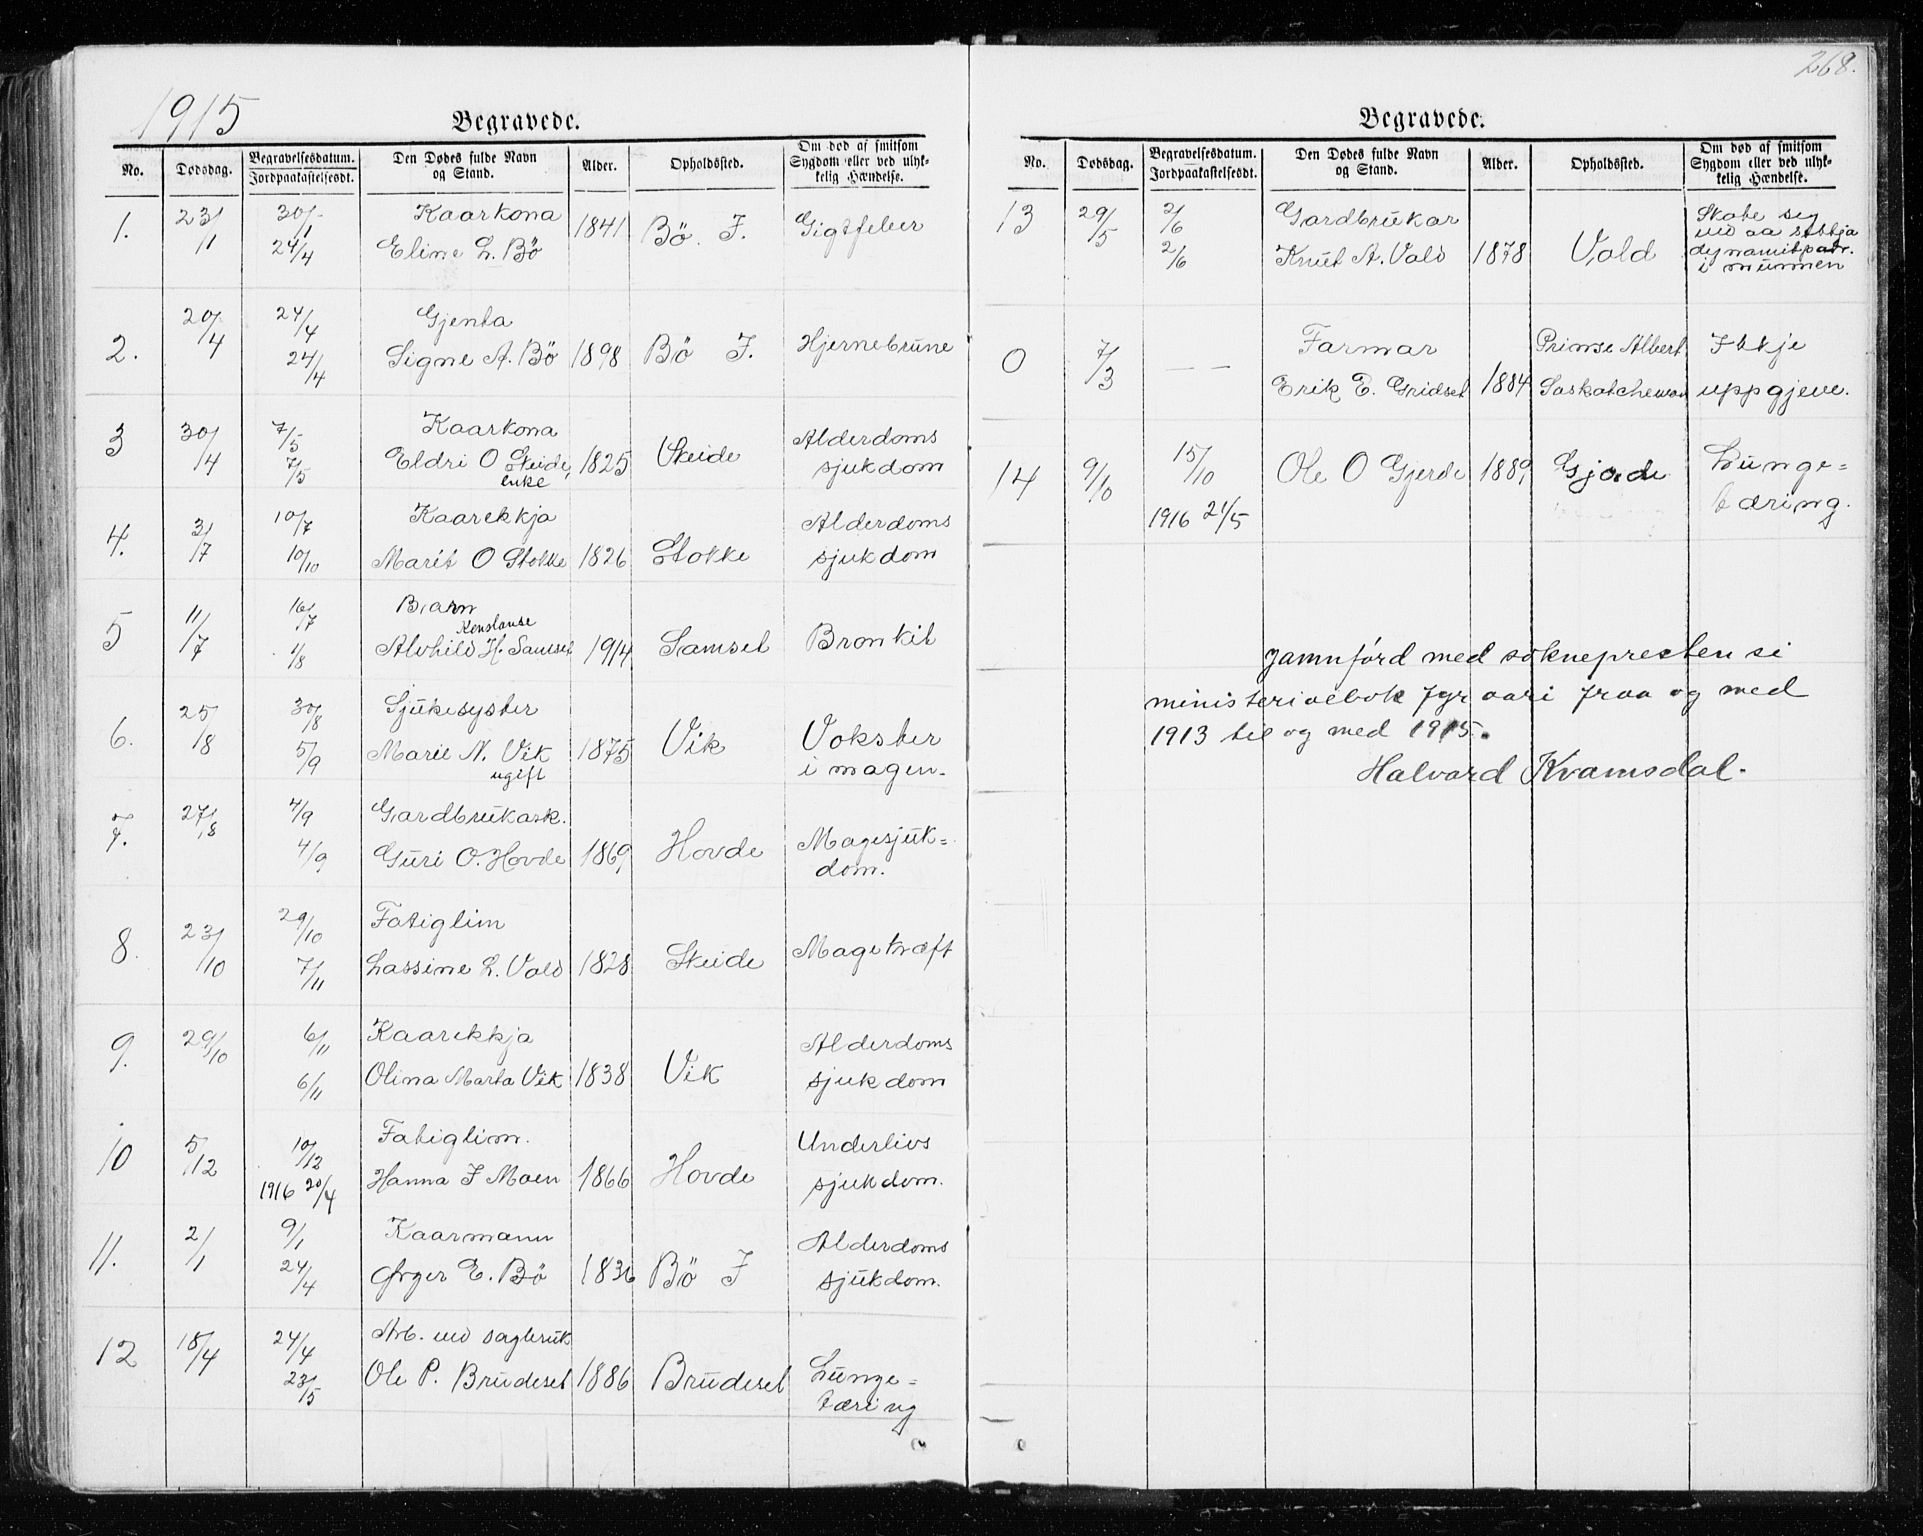 268.
1915
Begravede.
No. Dødsdag. Begravelsesdatum. Jordpaakastelsesdt. Den Dødes fulde Navn og Stand. Alder. Opholdssted. Om død af smitsom Sygdom eller ved ulykkelig Hændelse.
1. 23/1 30/1 Kaarkona
24/4 Eline L. Bö 1841 Bö. I. Gigtfeber
2. 20/4 24/4 Gjenta
24/4 Signe A. Bö 1898 Bö I. Hjernebrune
3 30/4 7/5 Kaarkona Alderdoms
7/5 Eldri O Skeide, 1825 Skeide sjukdom
enke
4. 3/7 10/7 Kaarekkja Alderdoms
10/10 Marit O Stokke 1826 Stokke sjukdom
5 11/7 16/7 Barn
Konstanse
1/8 Alvhild H. Samset 1914 Samset Bronkit
6. 25/8 30/8 Sjukesyster
5/9 Marie N. Vik 1875 Vik Vokster
ugift i magen.
7. 27/8 4/9 Gardbrukark.
4/9 Guri O. Hovde 1869 Hovde Magesjuk=
dom.
8. 23/10 29/10 Fatiglim
7/11 Lassine L. Vold 1828 Skeide Magekræft
9. 29/10 6/11 Kaarekkja Alderdoms
6/11 Olina Marta Vik 1838 Vik sjukdom
10 5/12 10/12 Fatiglim. Underlivs
1916 20/4 Hanna I Moen 1866 Hovde sjukdom.
11. 2/1 9/1 Kaarmann Alderdoms
24/4 E. Bö 1836 Bö I sjukdom.
12 18/4 24/4 Arb. ved sagbruk
23/5 Ole P. Brudeset 1886 Brudeset Lunge=
tæring
Begravede.
No. Dødsdag. Begravelsesdatum. Jordpaakastelsesdt. Den Dødes fulde Navn og Stand. Alder. Opholdssted. Om død af smitsom Sygdom eller ved ulykkelig Hændelse.
13 29/5 2/6 Gardbrukar Skote seg
ved aa
2/6 Knut A. Vold 1878 Vold dynamitpatr.
i munnen
0 7/3 — — Farmar Prinse Albert Ikkje
Erik E. Gridset 1884 Saskatchewan uppgjeve.
14 9/10 15/10 Ole O Gjerde 1889 Gjerde Lunge=
1916 21/5 tæring.
Jamnförd med soknepresten si
ministerialbok fyr aari fraa og med
1913 til og med 1915.
Halvard Kvamsdal.